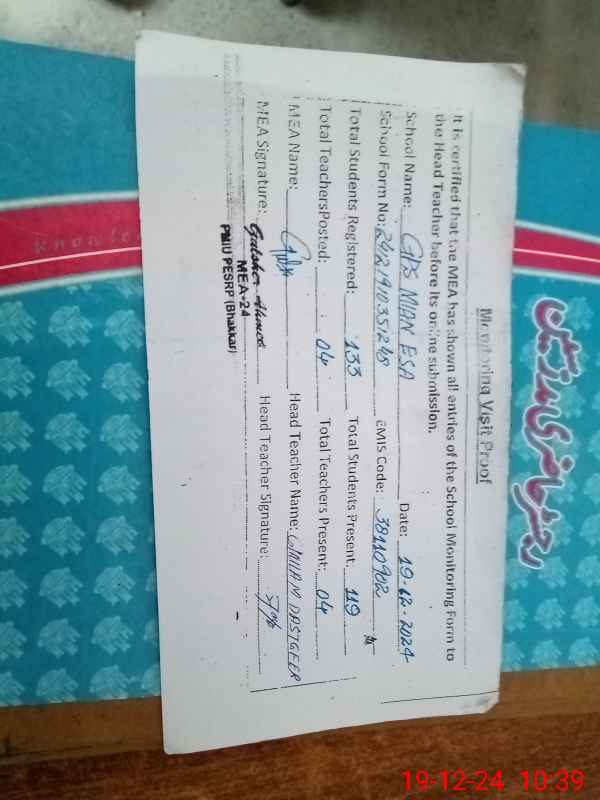 Monitoring Visit Proof
It is certified that the MEA has shown all entries of the School Monitoring Form to
the Head Teacher before its online submission.
School Name: GPS MIAN ESA Date: 19-12-2024
School Form No: 24121910351248 EMIS Code: 38110902
Total Students Registered: 133 Total Students Present: 119
Total Teachers Posted: 04 Total Teachers Present: 04
MEA Name: Head Teacher Name: GHULAM DASTGEER
MEA Signature: Head Teacher Signature:
MEA-24
PMIU PESRP (Bhakkar)
رجسٹر حاضری مدرسین
knowle
19-12-24 10:39